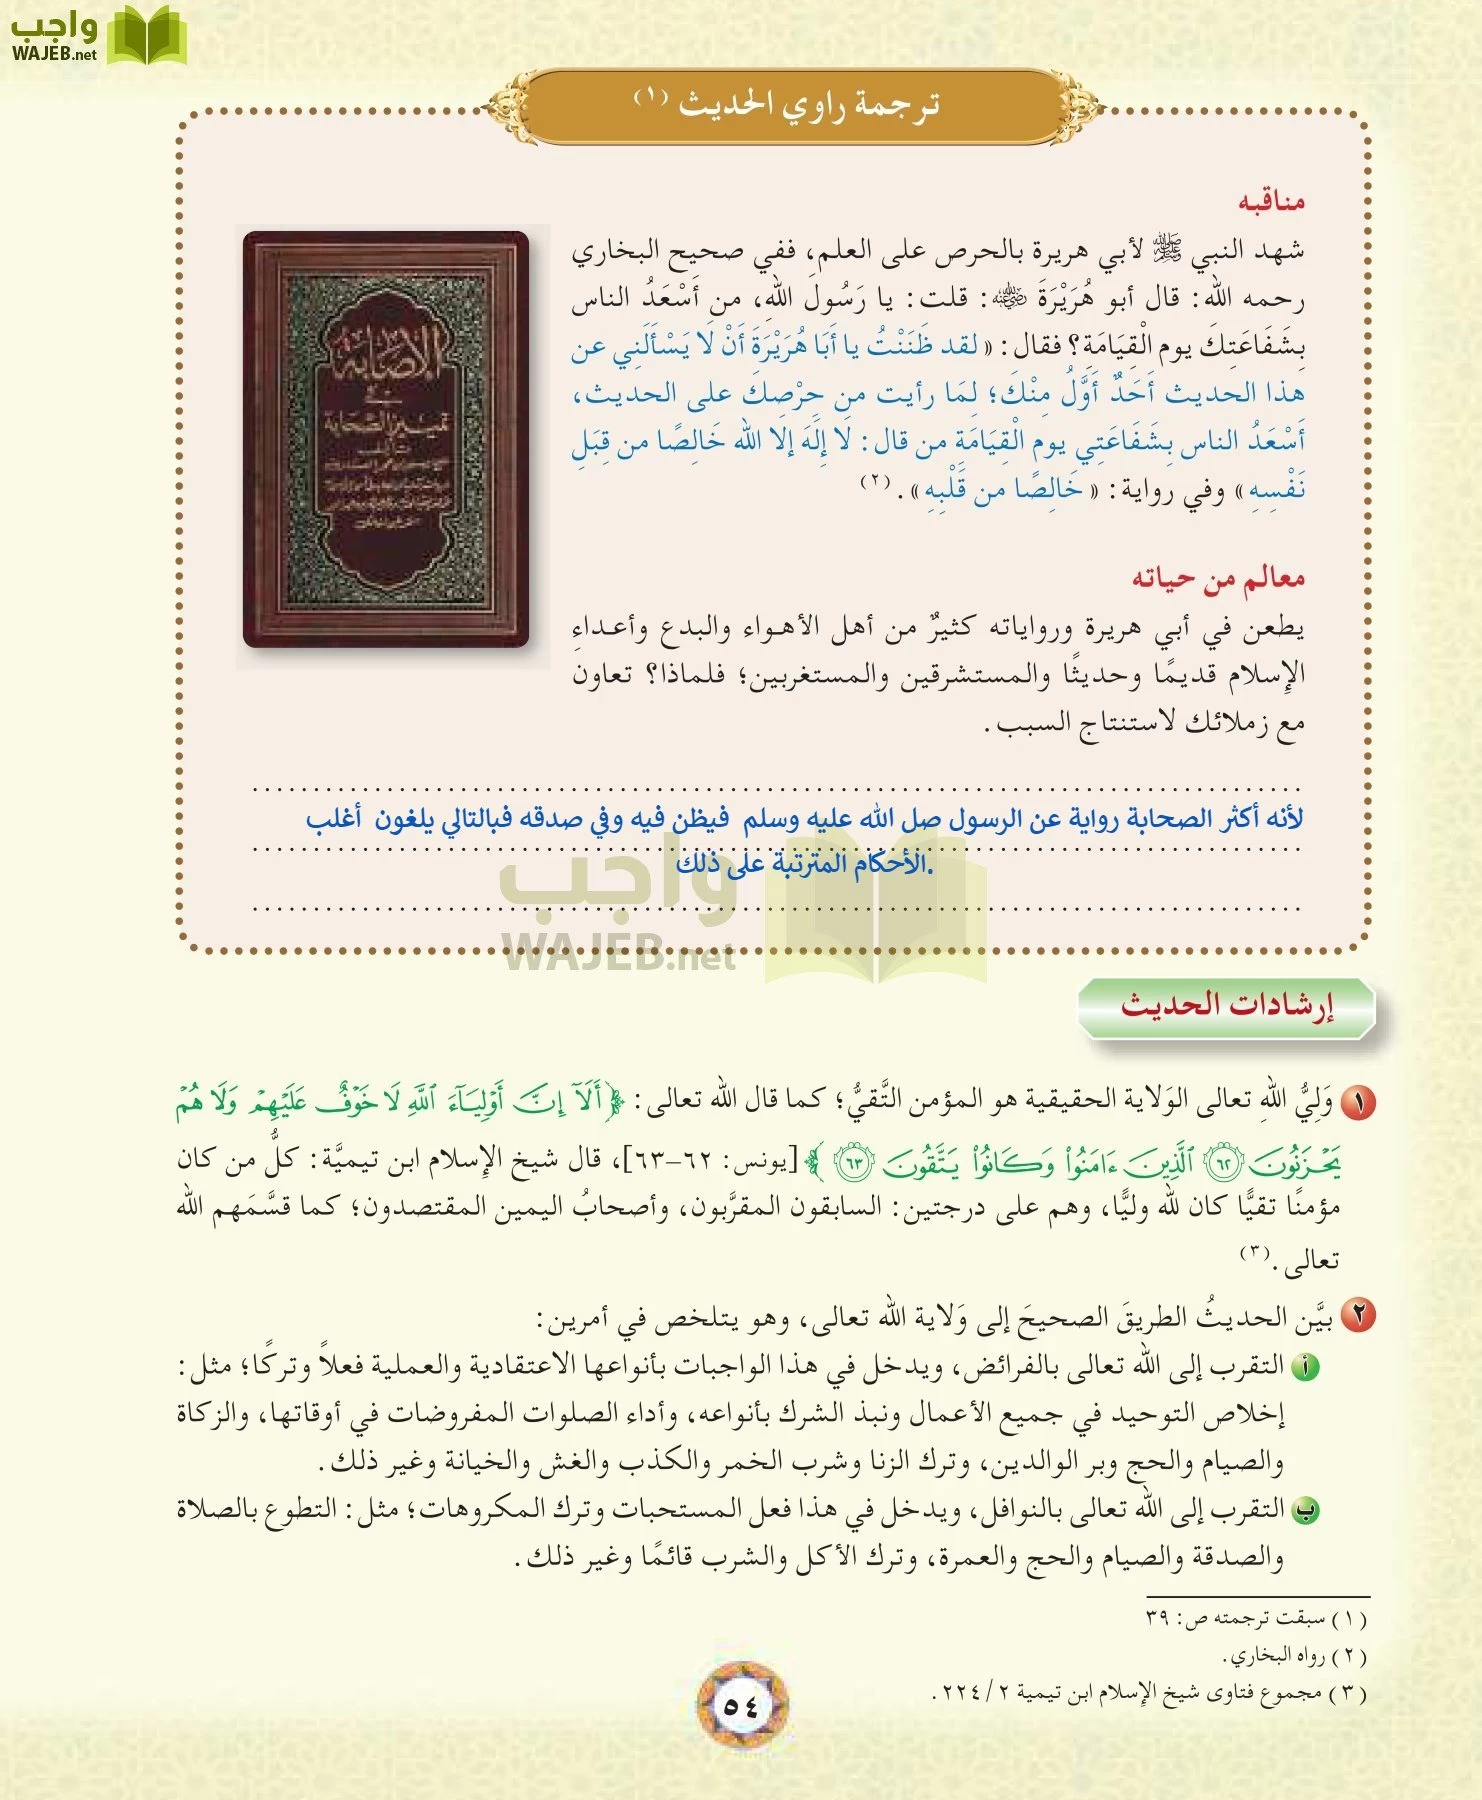 واجب
WAJEB.net
ترجمة راوي الحديث (١)
مناقبه
شهد النبي ﷺ لأبي هريرة بالحرص على العلم، ففي صحيح البخاري
رحمه الله: قال أبو هُرَيْرَةَ رضي الله عنه: قلت: يا رَسُولَ اللهِ، من أَسْعَدُ الناس
بِشَفَاعَتِكَ يوم الْقِيَامَةِ؟ فقال: « لقد ظَنَنْتُ يا أَبَا هُرَيْرَةَ أَنْ لَا يَسْأَلَنِي عن
هذا الحديث أَحَدٌ أَوَّلُ مِنْكَ؛ لِمَا رأيت من حِرْصِكَ على الحديث،
أَسْعَدُ الناس بِشَفَاعَتِي يوم الْقِيَامَةِ من قال: لَا إِلَهَ إلا الله خَالِصًا من قِبَلِ
نَفْسِهِ » وفي رواية: « خَالِصًا من قَلْبِهِ ». (٢)
الإصابة
في
تمييز الصحابة
معالم من حياته
يطعن في أبي هريرة ورواياته كثيرٌ من أهل الأهواء والبدع وأعداءِ
الإسلام قديمًا وحديثًا والمستشرقين والمستغربين؛ فلماذا؟ تعاون
مع زملائك لاستنتاج السبب.
لأنه أكثر الصحابة رواية عن الرسول صل الله عليه وسلم فيظن فيه وفي صدقه فبالتالي يلغون أغلب
.الأحكام المترتبة على ذلك
واجب
WAJEB.net
إرشادات الحديث
١ وَلِيُّ اللهِ تعالى الوَلاية الحقيقية هو المؤمن التَّقيُّ؛ كما قال الله تعالى: ﴿ أَلَآ إِنَّ أَوْلِيَآءَ ٱللَّهِ لَا خَوْفٌ عَلَيْهِمْ وَلَا هُمْ
يَحْزَنُونَ ٦٢ ٱلَّذِينَ ءَامَنُوا۟ وَكَانُوا۟ يَتَّقُونَ ٦٣ ﴾ [يونس: ٦٢–٦٣]، قال شيخ الإسلام ابن تيميَّة: كلُّ من كان
مؤمنًا تقيًّا كان لله وليًّا، وهم على درجتين: السابقون المقرَّبون، وأصحابُ اليمين المقتصدون؛ كما قسَّمَهم الله
تعالى.(٣)
٢ بيَّن الحديثُ الطريقَ الصحيحَ إلى وَلاية الله تعالى، وهو يتلخص في أمرين:
أ التقرب إلى الله تعالى بالفرائض، ويدخل في هذا الواجبات بأنواعها الاعتقادية والعملية فعلاً وتركًا؛ مثل:
إخلاص التوحيد في جميع الأعمال ونبذ الشرك بأنواعه، وأداء الصلوات المفروضات في أوقاتها، والزكاة
والصيام والحج وبر الوالدين، وترك الزنا وشرب الخمر والكذب والغش والخيانة وغير ذلك.
ب التقرب إلى الله تعالى بالنوافل، ويدخل في هذا فعل المستحبات وترك المكروهات؛ مثل: التطوع بالصلاة
والصدقة والصيام والحج والعمرة، وترك الأكل والشرب قائمًا وغير ذلك.
(١) سبقت ترجمته ص: ٣٩
(٢) رواه البخاري.
(٣) مجموع فتاوى شيخ الإسلام ابن تيمية ٢/ ٢٢٤.
٥٤